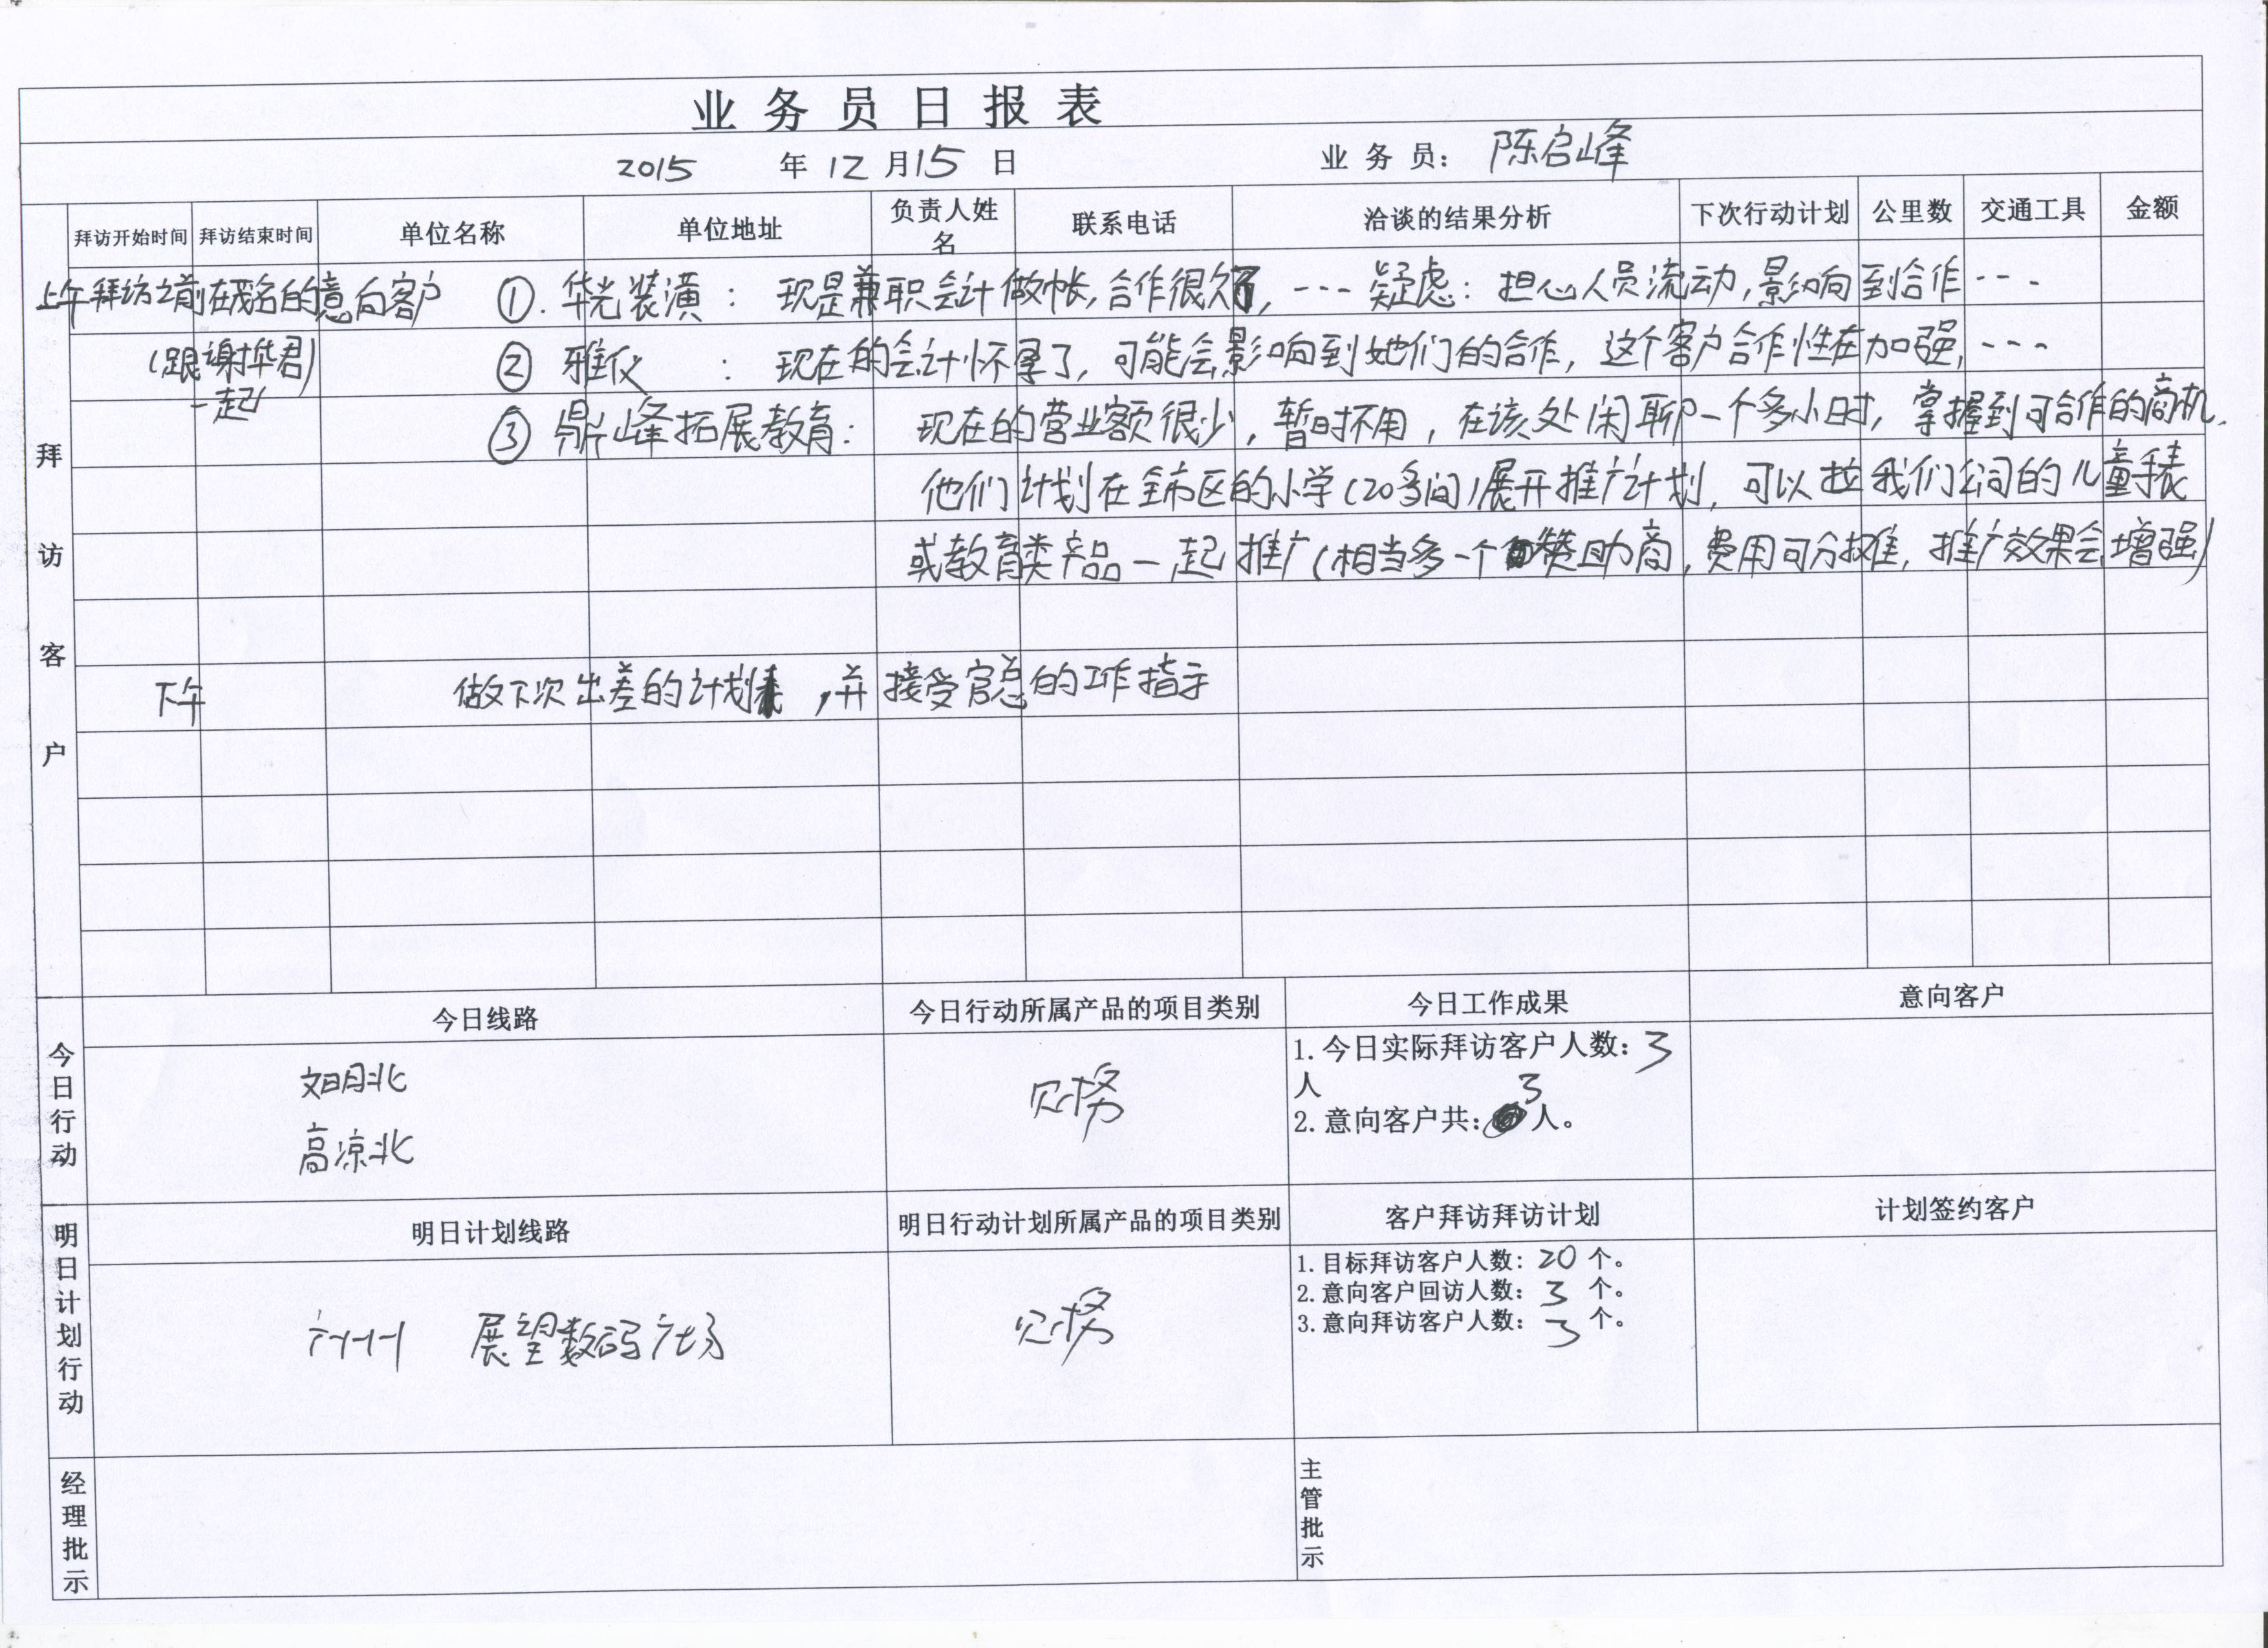 业务员日报表
2015 年 12 月 15 日 业务员： 陈启峰
拜访开始时间 拜访结束时间 单位名称 单位地址 负责人姓名 联系电话 洽谈的结果分析 下次行动计划 公里数 交通工具 金额
拜访客户
上午拜访之前在茂名的意向客户 ①. 华光装潢： 现是兼职会计做帐,合作很久了, --- 疑虑：担心人员流动,影响到合作---
(跟谢华君) ② 雅仪 ： 现在的会计怀孕了, 可能会影响到她们的合作, 这个客户合作性在加强, ---
一起 ③ 鼎峰拓展教育： 现在的营业额很少, 暂时不用, 在该处闲聊一个多小时, 掌握到可合作的商机.
他们计划在全市区的小学(20多间)展开推广计划, 可以拉我们公司的儿童手表
或教育类产品一起推广(相当多一个赞助商, 费用可分摊, 推广效果会增强)
下午 做下次出差的计划表, 并接受官总的工作指示
今日行动
今日线路 今日行动所属产品的项目类别 今日工作成果 意向客户
文明北
高凉北
财务
1.今日实际拜访客户人数：3
人
2.意向客户共：3人。
明日计划行动
明日计划线路 明日行动计划所属产品的项目类别 客户拜访拜访计划 计划签约客户
广州 展望数码广场
财务
1.目标拜访客户人数：20 个。
2.意向客户回访人数：3 个。
3.意向拜访客户人数：3 个。
经理批示
主管批示